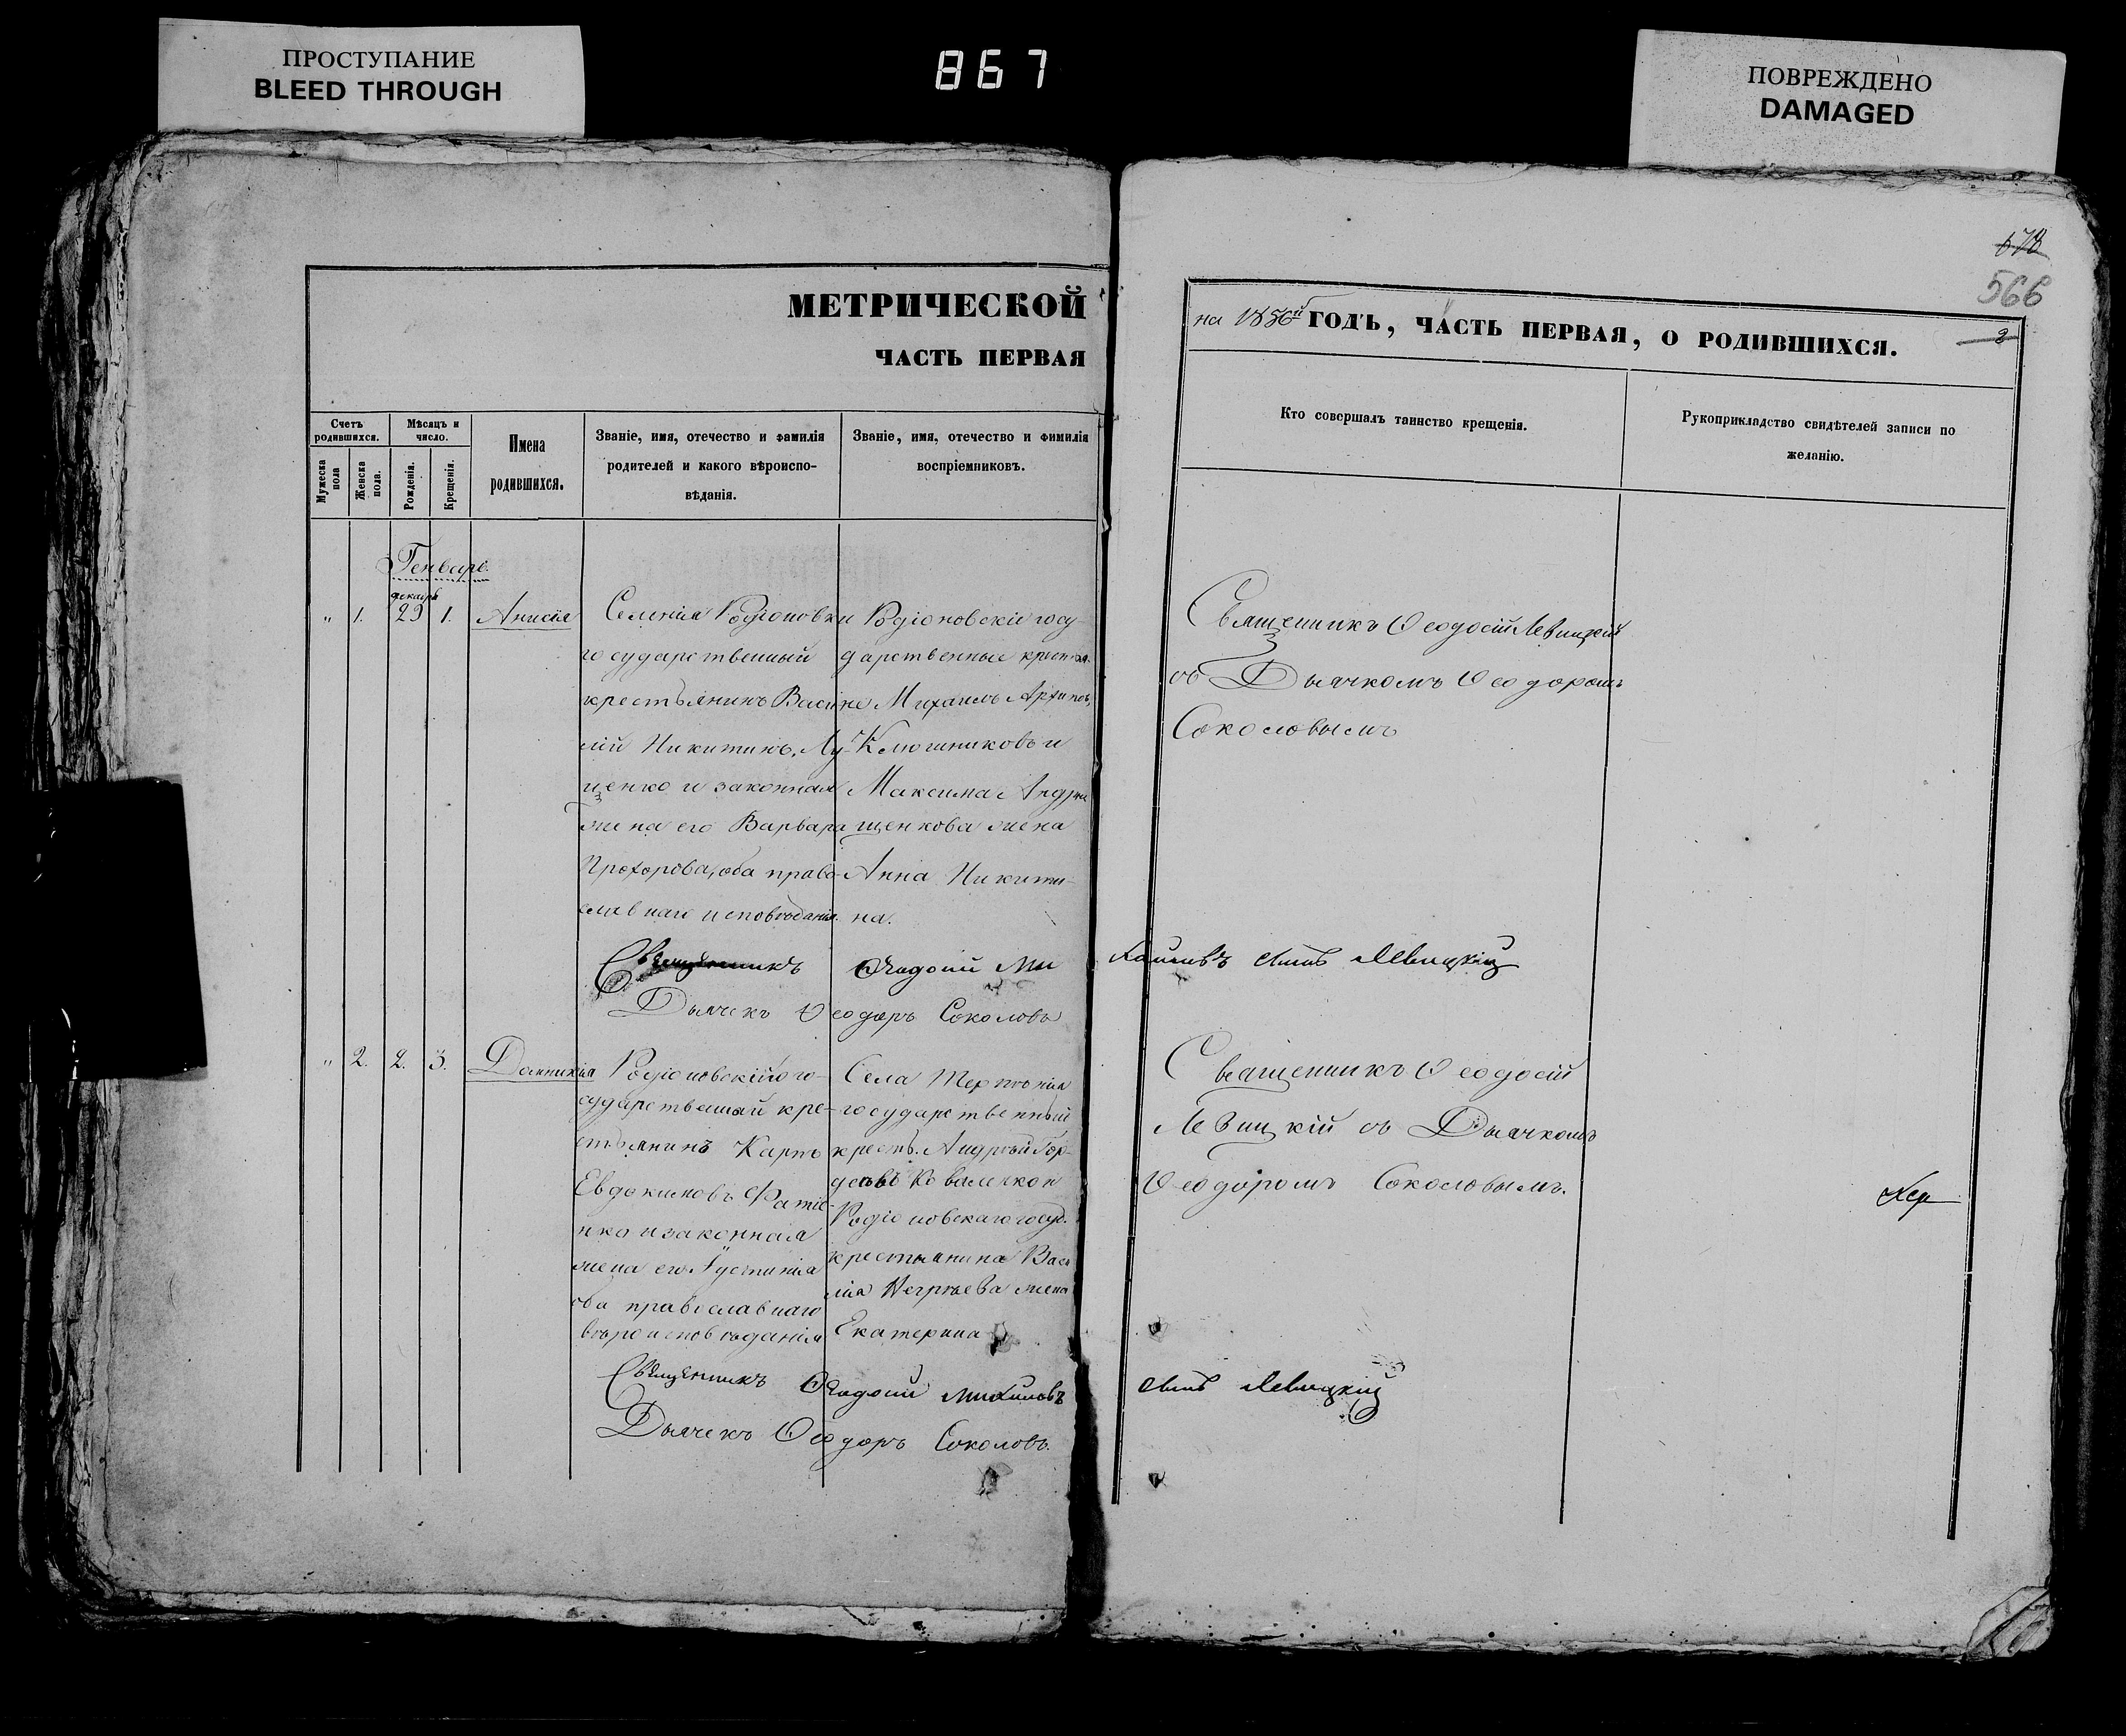 ПРОСТУПАНИЕ
BLEED THROUGH
867
ПОВРЕЖДЕНО
DAMAGED
566
МЕТРИЧЕСКОЙ
ЧАСТЬ ПЕРВАЯ
на 1856й ГОДЪ, ЧАСТЬ ПЕРВАЯ, О РОДИВШИХСЯ.
2
Счетъ родившихся.
Мѣсяцъ и число.
Мужеска пола
Женска пола.
Рожденія.
Крещенія.
Имена родившихся.
Званіе, имя, отечество и фамилія
родителей и какого вѣроиспо-
вѣданія.
Званіе, имя, отечество и фимилія
воспріемниковъ.
Кто совершалъ таинство крещенія.
Рукоприкладство свидѣтелей записи по
желанію.
Генварь.
декабрь
" 1. 29 1. Анисія
Селенія Родіоновки
государственный
крестьянинъ Васи
лій Никитинъ Лу-
ценко и законная
жена его Варвара
Прохорова, оба право-
славнаго исповѣданія.
Родіоновскіе госу-
дарственные крестья-
не Михаилъ Архиповъ
Ключниковъ и
Максима Андрю
щенкова жена
Анна Никити-
на.
Священникъ Ѳеодосій Левицкій
съ Дьячкомъ Ѳеодоромъ
Соколовымъ
Священникъ Ѳеодосій Михайловъ сынъ Левицкій
Дьячекъ Ѳеодоръ Соколовъ
" 2. 2. 3. Домникія
Родіоновскій го-
сударственный кре-
стьянинъ Карпъ
Евдокимовъ Фатѣ-
нко и законная
жена его Іустинія
оба православнаго
вѣроисповѣданія
Села Терпѣнія
государственный
крест. Андрей Гор-
дѣевъ Коваленко и
Родіоновскаго госуд.
крестьянина Васи
лія жена
Екатерина
Священникъ Ѳеодосій
Левицкій съ Дьячкомъ
Ѳеодоромъ Соколовымъ.
Священникъ Ѳеодосій Михайловъ сынъ Левицкій
Дьячекъ Ѳеодоръ Соколовъ.